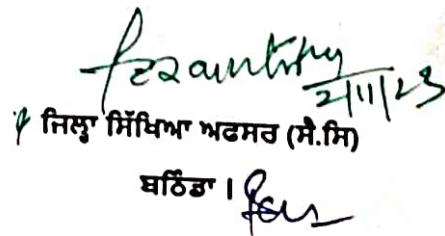 2/11/23
ਜਿਲ੍ਹਾ ਸਿੱਖਿਆ ਅਫਸਰ (ਸੈ.ਸਿ)
ਬਠਿੰਡਾ ।